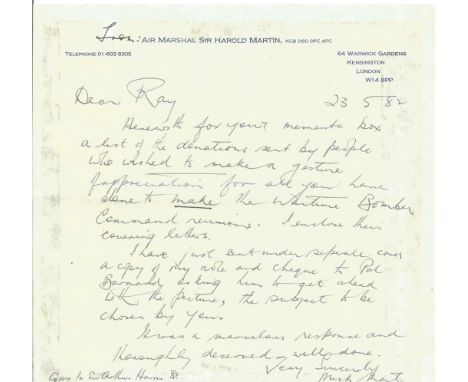 From: AIR MARSHAL SIR HAROLD MARTIN, KCB DSO DFC AFC
TELEPHONE 01-603 8305
64 WARWICK GARDENS
KENSINGTON
LONDON
W14 8PP
Dear Ray
23 5 82
Herewith for your memento box
a list of the donations sent by people
who wished to make a gesture
of appreciation for all you have
done to make the Wartime Bomber
Command reunions. I enclose their
covering letters.
I have just sent under seperate cover
a copy of my note and cheque to Pat
Barnard asking him to get ahead
with the picture, the subject to be
chosen by you.
It was a marvelous response and
thoroughly deserved - well done.
Very Sincerely
Copy to Sir Arthur Harris Bt.